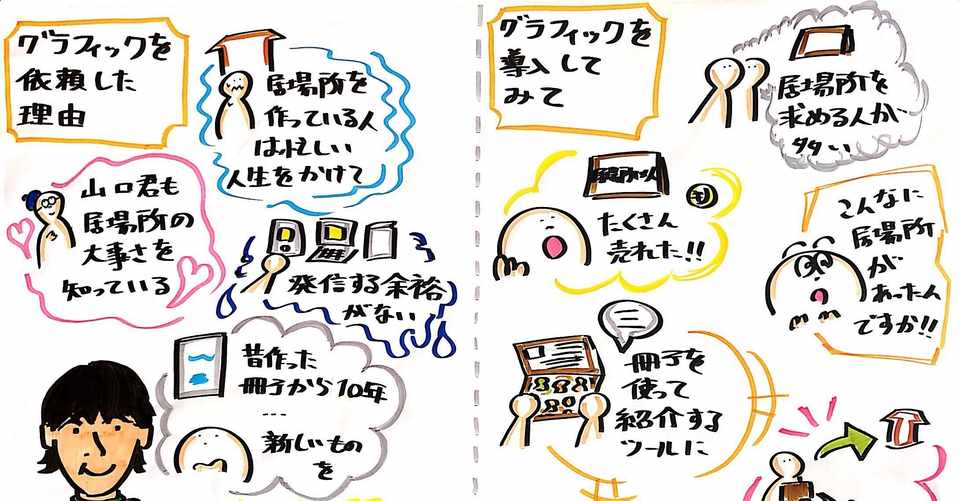 グラフィックを
依頼した
理由
居場所を
作っている人
は忙しい
人生をかけて
山口君も
居場所の
大事さを
知っている
発信する余裕
がない
昔作った
冊子から10年
...
新しいもの
を
グラフィックを
導入して
みて
居場所を
求める人が
多い
たくさん
売れた!!
こんなに
居場所
が
あったん
ですか!!
冊子を
使って
紹介する
ツールに